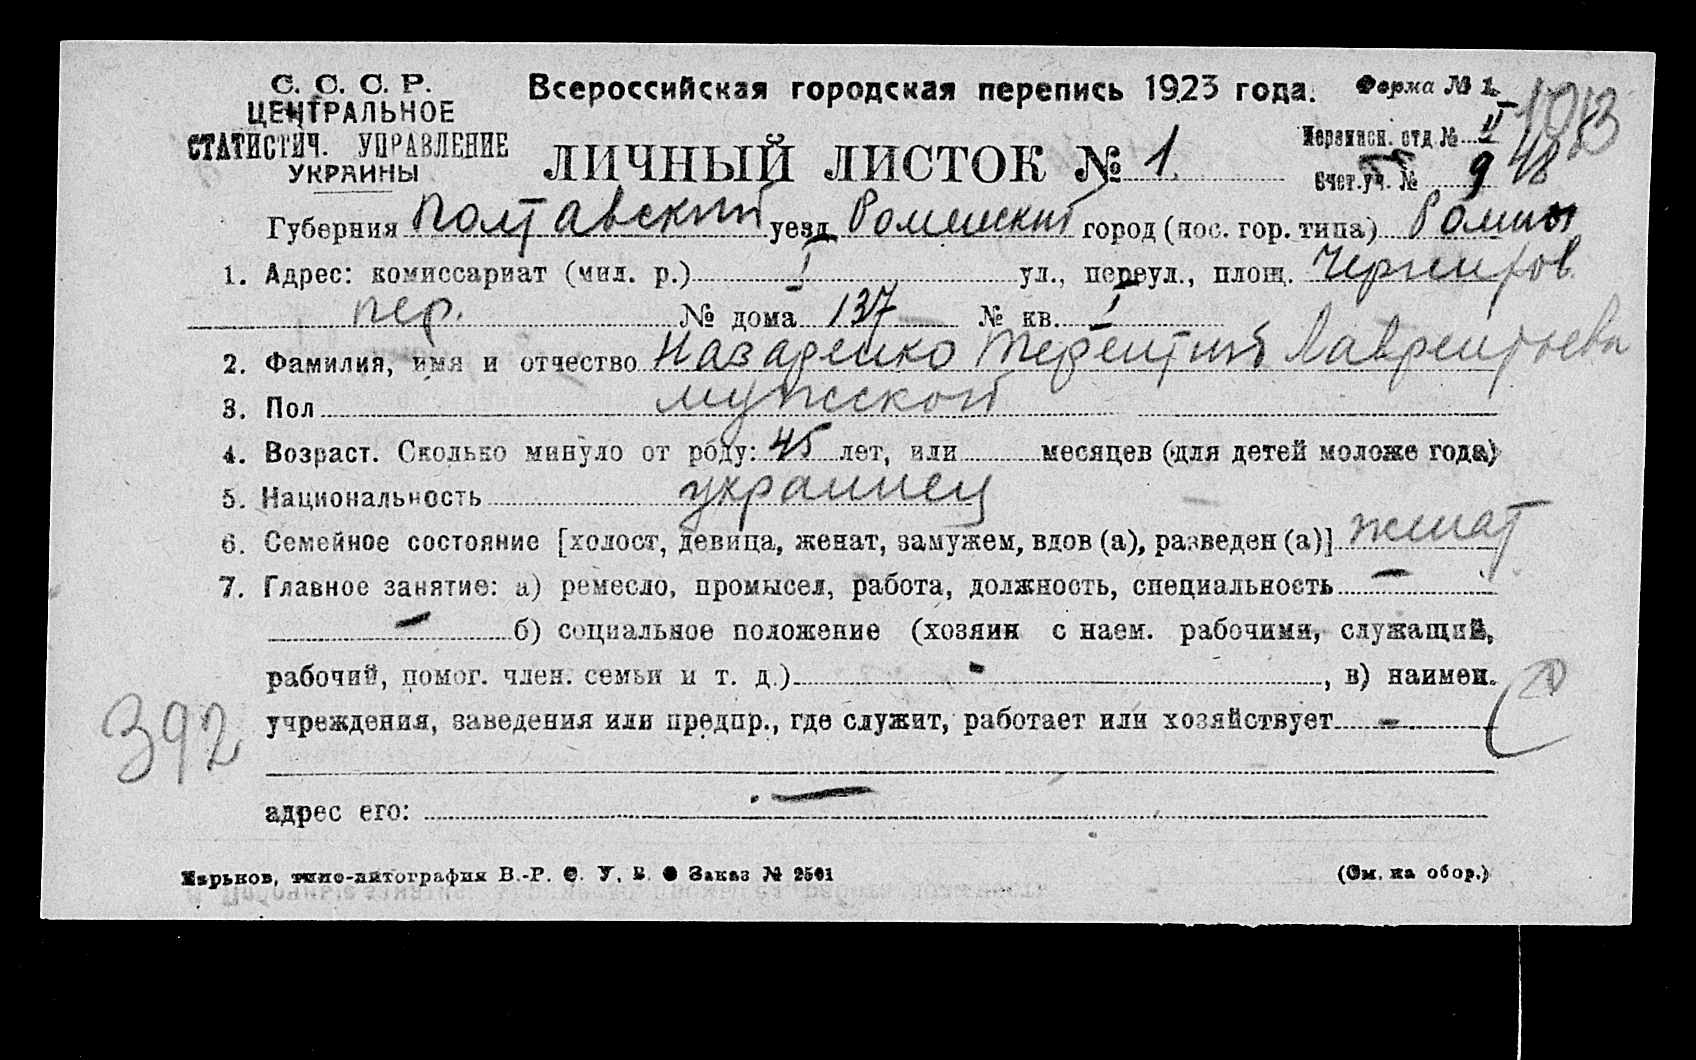 С. С. С. Р.
ЦЕНТРАЛЬНОЕ
СТАТИСТИЧ. УПРАВЛЕНИЕ
УКРАИНЫ
Всероссийская городская перепись 1923 года.
Форма № 1.
ЛИЧНЫЙ ЛИСТОК № 1.
Переписн. отд. № II
Счет. уч. № 9 48
Губерния Полтавский уезд Роменский город (пос. гор. типа) Ромны
1. Адрес: комиссариат (мил. р.) I ул., переул., площ. Чернигов.
пер. № дома 137 № кв. 1
2. Фамилия, имя и отчество Назаренко Терентий Лаврентьеви
3. Пол мужской
4. Возраст. Сколько минуло от роду: 45 лет, или месяцев (для детей моложе года)
5. Национальность украинец
6. Семейное состояние [холост, девица, женат, замужем, вдов (а), разведен (а)] женат
7. Главное занятие: а) ремесло, промысел, работа, должность, специальность —
— б) социальное положение (хозяин с наем. рабочими, служащий,
рабочий, помог. член. семьи и т. д.) - , в) наимен.
учреждения, заведения или предпр., где служит, работает или хозяйствует -
392
адрес его: —
Харьков, типо-литография В.-Р. С. У. В. Заказ № 2501
(См. на обор.)